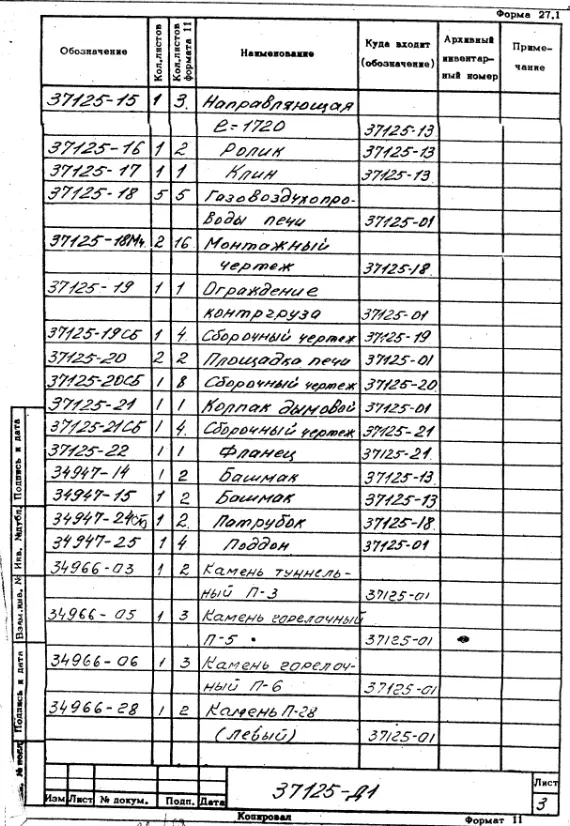 Форма 27.1
Обозначение Кол.листов Кол.листов формата 11 Наименование Куда входит (обозначение) Архивный инвентарный номер Примечание
37125-15 1 3. Направляющая
ℓ=1720 37125-13
37125-16 1 2 Ролик 37125-13
37125-17 1 1 Клин 37125-13
37125-18 5 5 Газовоздухопро-
воды печи 37125-01
37125-18Мч 2 16 Монтажный
чертеж 37125-18
37125-19 1 1 Ограждение
контргруза 37125-01
37125-19СБ 1 4. Сборочный чертеж 37125-19
37125-20 2 2 Площадка печи 37125-01
37125-20СБ 1 8 Сборочный чертеж 37125-20
37125-21 1 1 Колпак дымовой 37125-01
37125-21СБ 1 4. Сборочный чертеж 37125-21
37125-22 1 1 Фланец 37125-21
34947-14 1 2 Башмак 37125-13
34947-15 1 2 Башмак 37125-13
34947-24СБ 1 2. Патрубок 37125-18
34947-25 1 4 Поддон 37125-01
34966-03 1 2 Камень туннель-
ный П-3 37125-01
34966-05 1 3 Камень горелочный
П-5 37125-01
34966-06 1 3 Камень горелоч-
ный П-6 37125-01
34966-28 1 2 Камень П-28
(левый) 37125-01
Подпись и дата
Инв. №дубл.
Взам.инв. №
Подпись и дата
37125-Д1
Лист
3
Изм Лист № докум. Подп. Дата
Копировал Формат 11